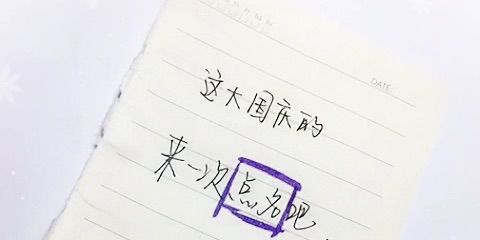 DATE:
这大国庆的
来一次点名吧